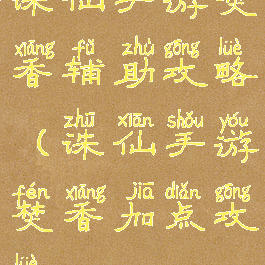 诛仙手游焚
xiāng fǔ zhù gōng lüè
香辅助攻略
zhū xiān shǒu yóu
(诛仙手游
fén xiāng jiā diǎn gōng
焚香加点攻
lüè